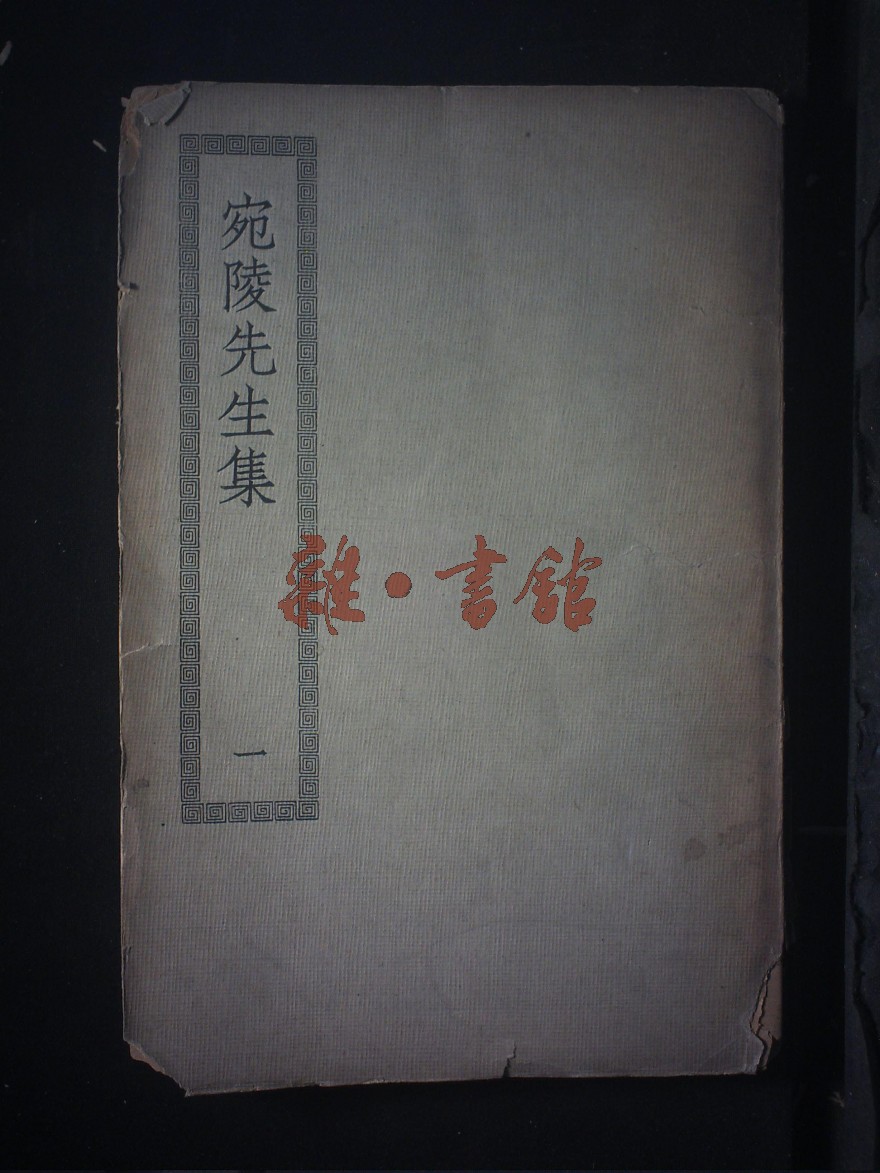 宛陵先生集
一
雜·書館